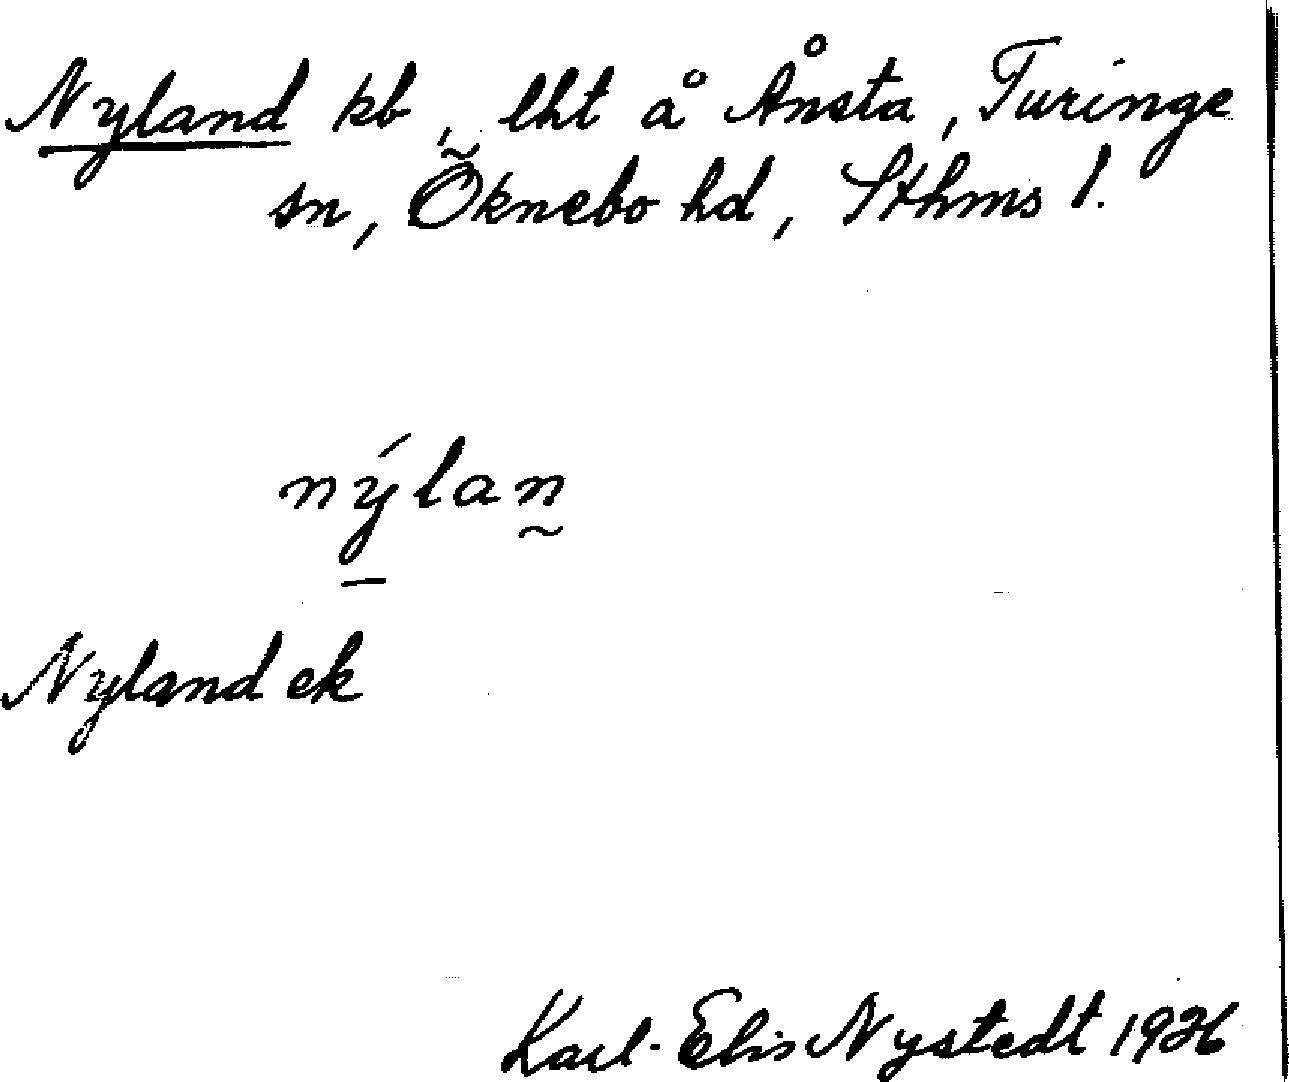 Nyland kb, lht å Ånsta, Turinge
sn, Öknebo hd, Sthms l.
nýlan
Nyland ek
Karl-Elis Nystedt 1936